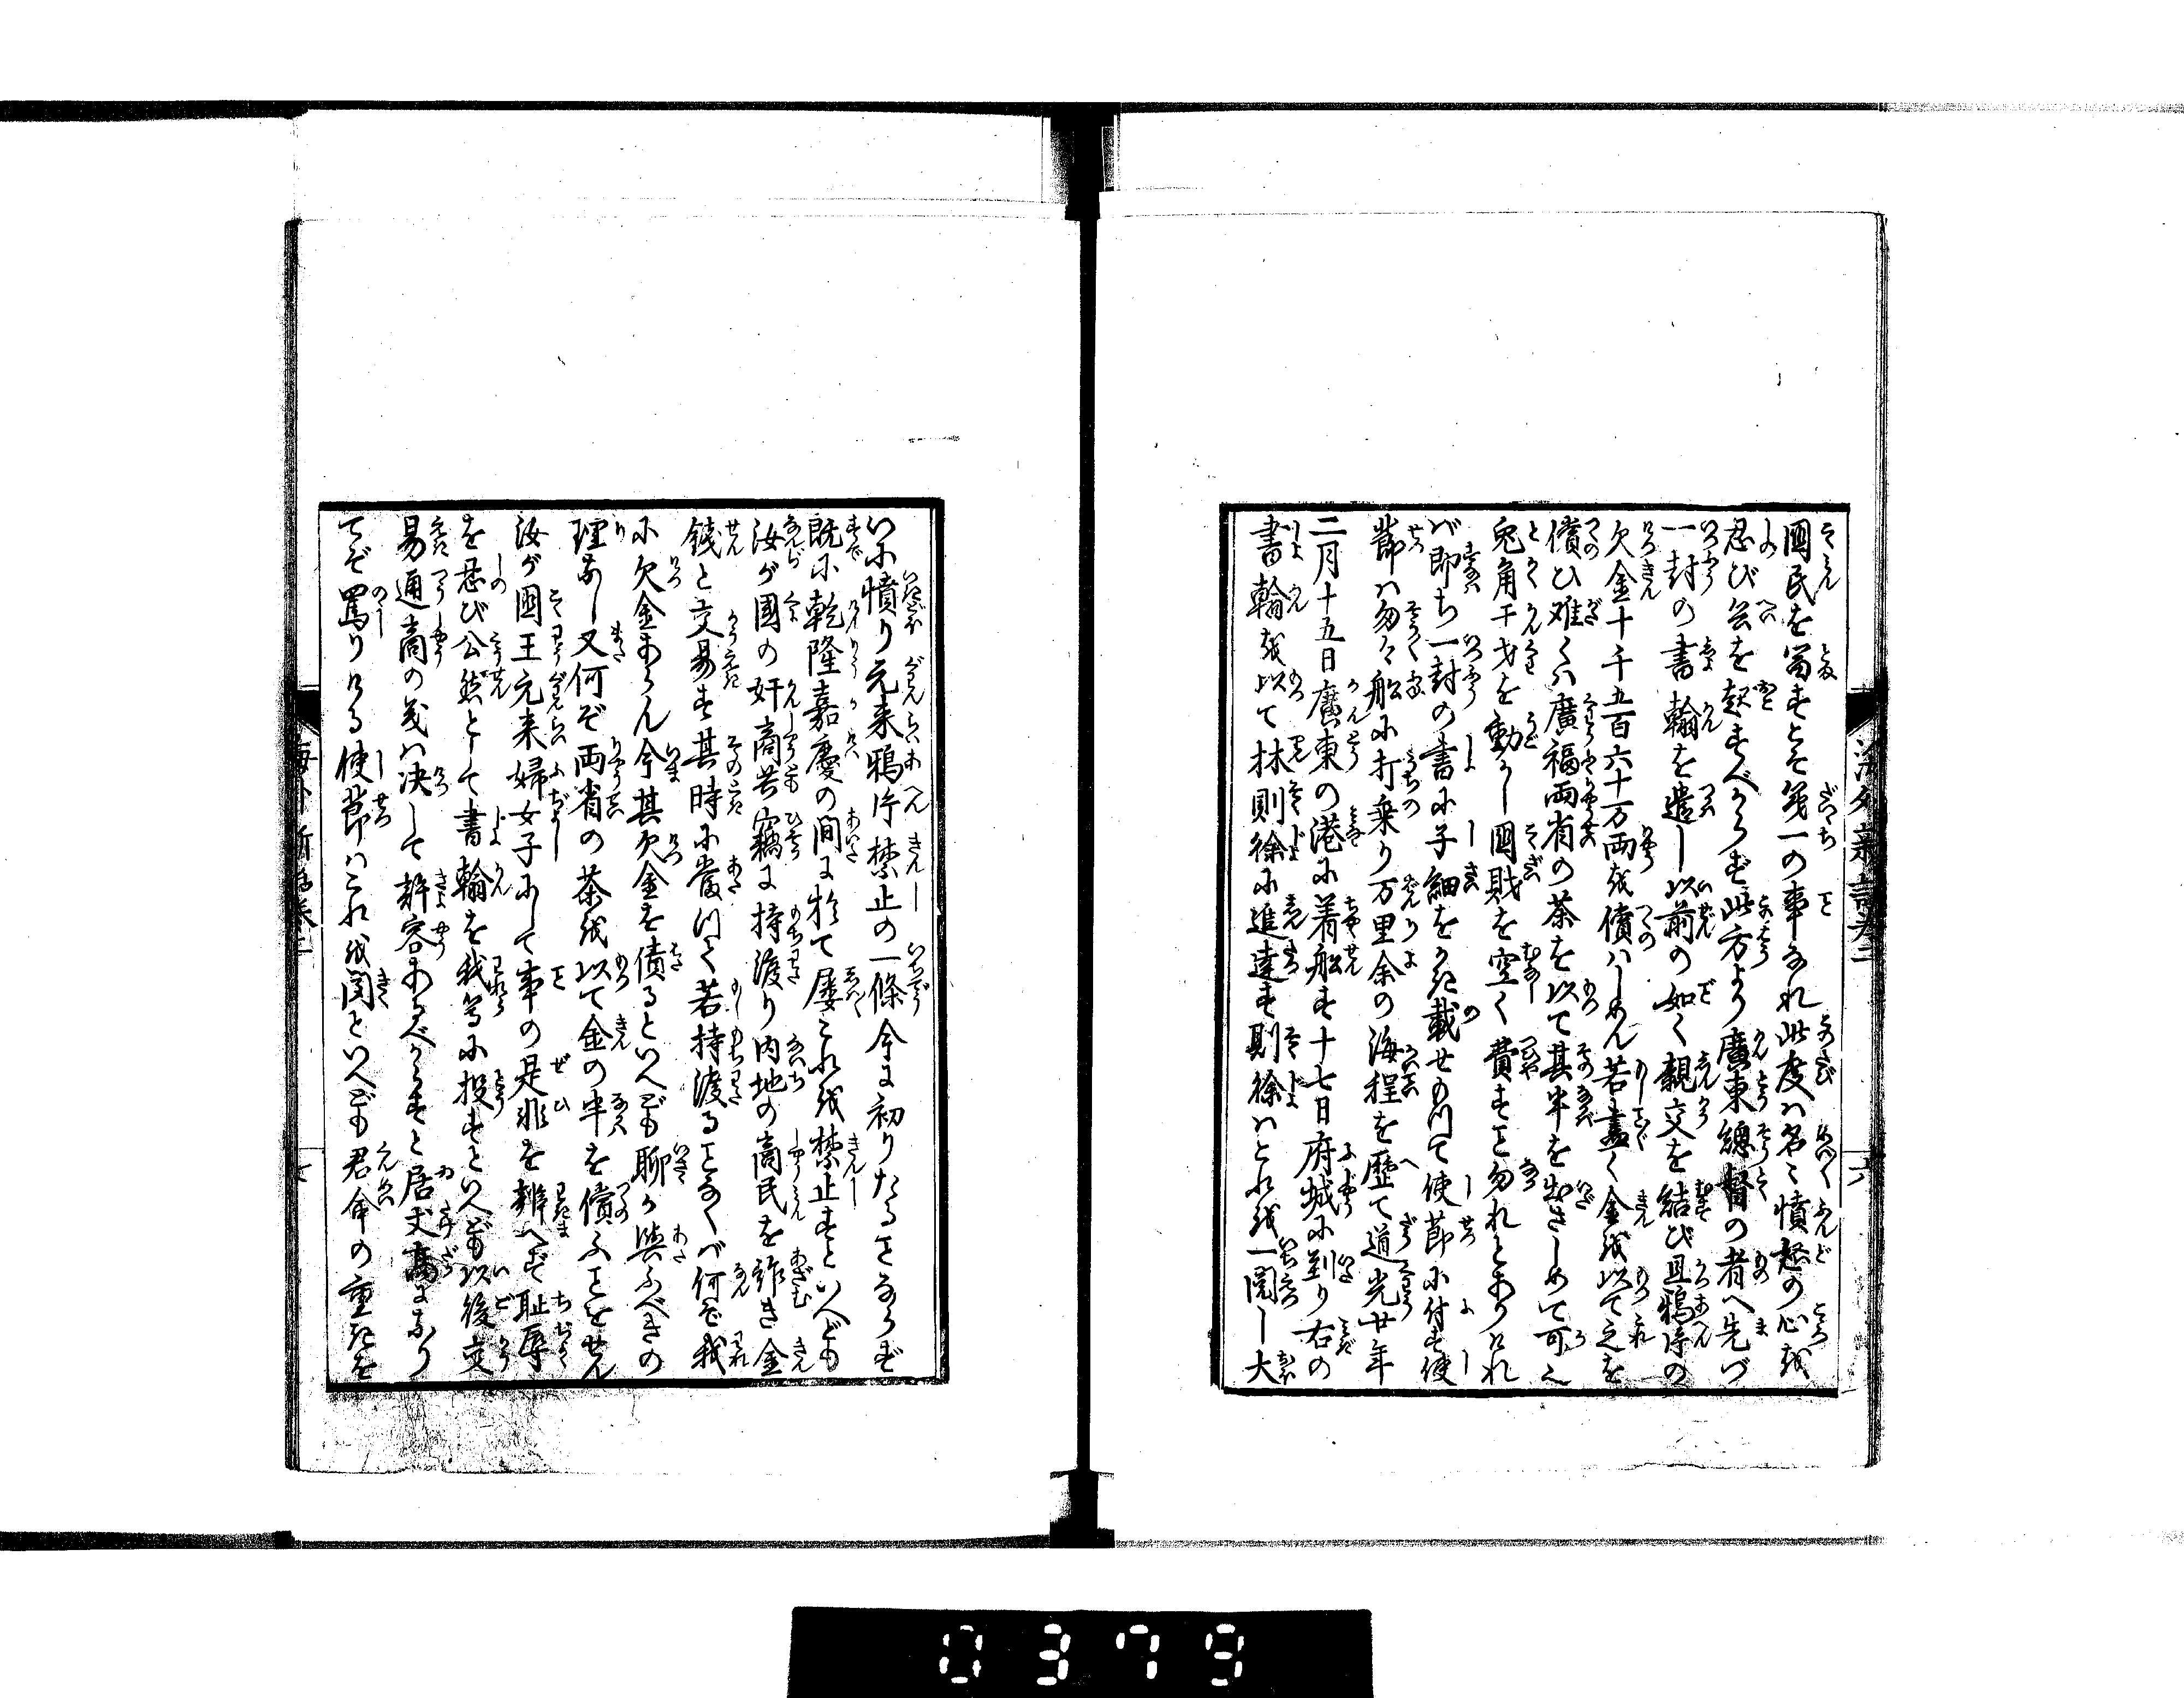 國民を富すこそ第一の事なれ此度は各々憤怒の心を
忍び兵を起すべからず此方より廣東總督の者へ先づ
一封の書翰を遣し以前の如く親交を結び且鴉片の
欠金十千五百六十万両を償はしめん若盡く金を以て之を
償ひ難くは廣福両省の茶を以て其半を出さしめて可也
兎角干戈を動かし國財を空く費すこと勿れとありけれ
ば即ち一封の書に子細をかき載せもつて使節に付す使
節は勿々船に打乗り万里余の海程を歴て道光廿年
二月十五日廣東の港に着船す十七日府城に到り右の
書翰を以て林則徐に進達す則徐はこれを一閲し大
いに憤り元来鴉片禁止の一條今に初りたることならず
既に乾隆嘉慶の間に於て屡これを禁止すといへども
汝が國の奸商共竊に持渡り内地の商民を詐き金
銭と交易す其時に當つて若持渡ることなくば何ぞ我
に欠金あらん今其欠金を債るといへども聊か與ふべきの
理なし又何ぞ両省の茶を以て金の半を償ふことをせん
汝が國王元来婦女子にして事の是非を辨へず耻辱
を忍び公然として書翰を我等に投すといへども以後交
易通商の義は决して許容あるべからずと居丈高になり
てぞ罵りける使節はこれを聞といへども君命の重きを
海外新話巻二
六
海外新話巻二
七
0379